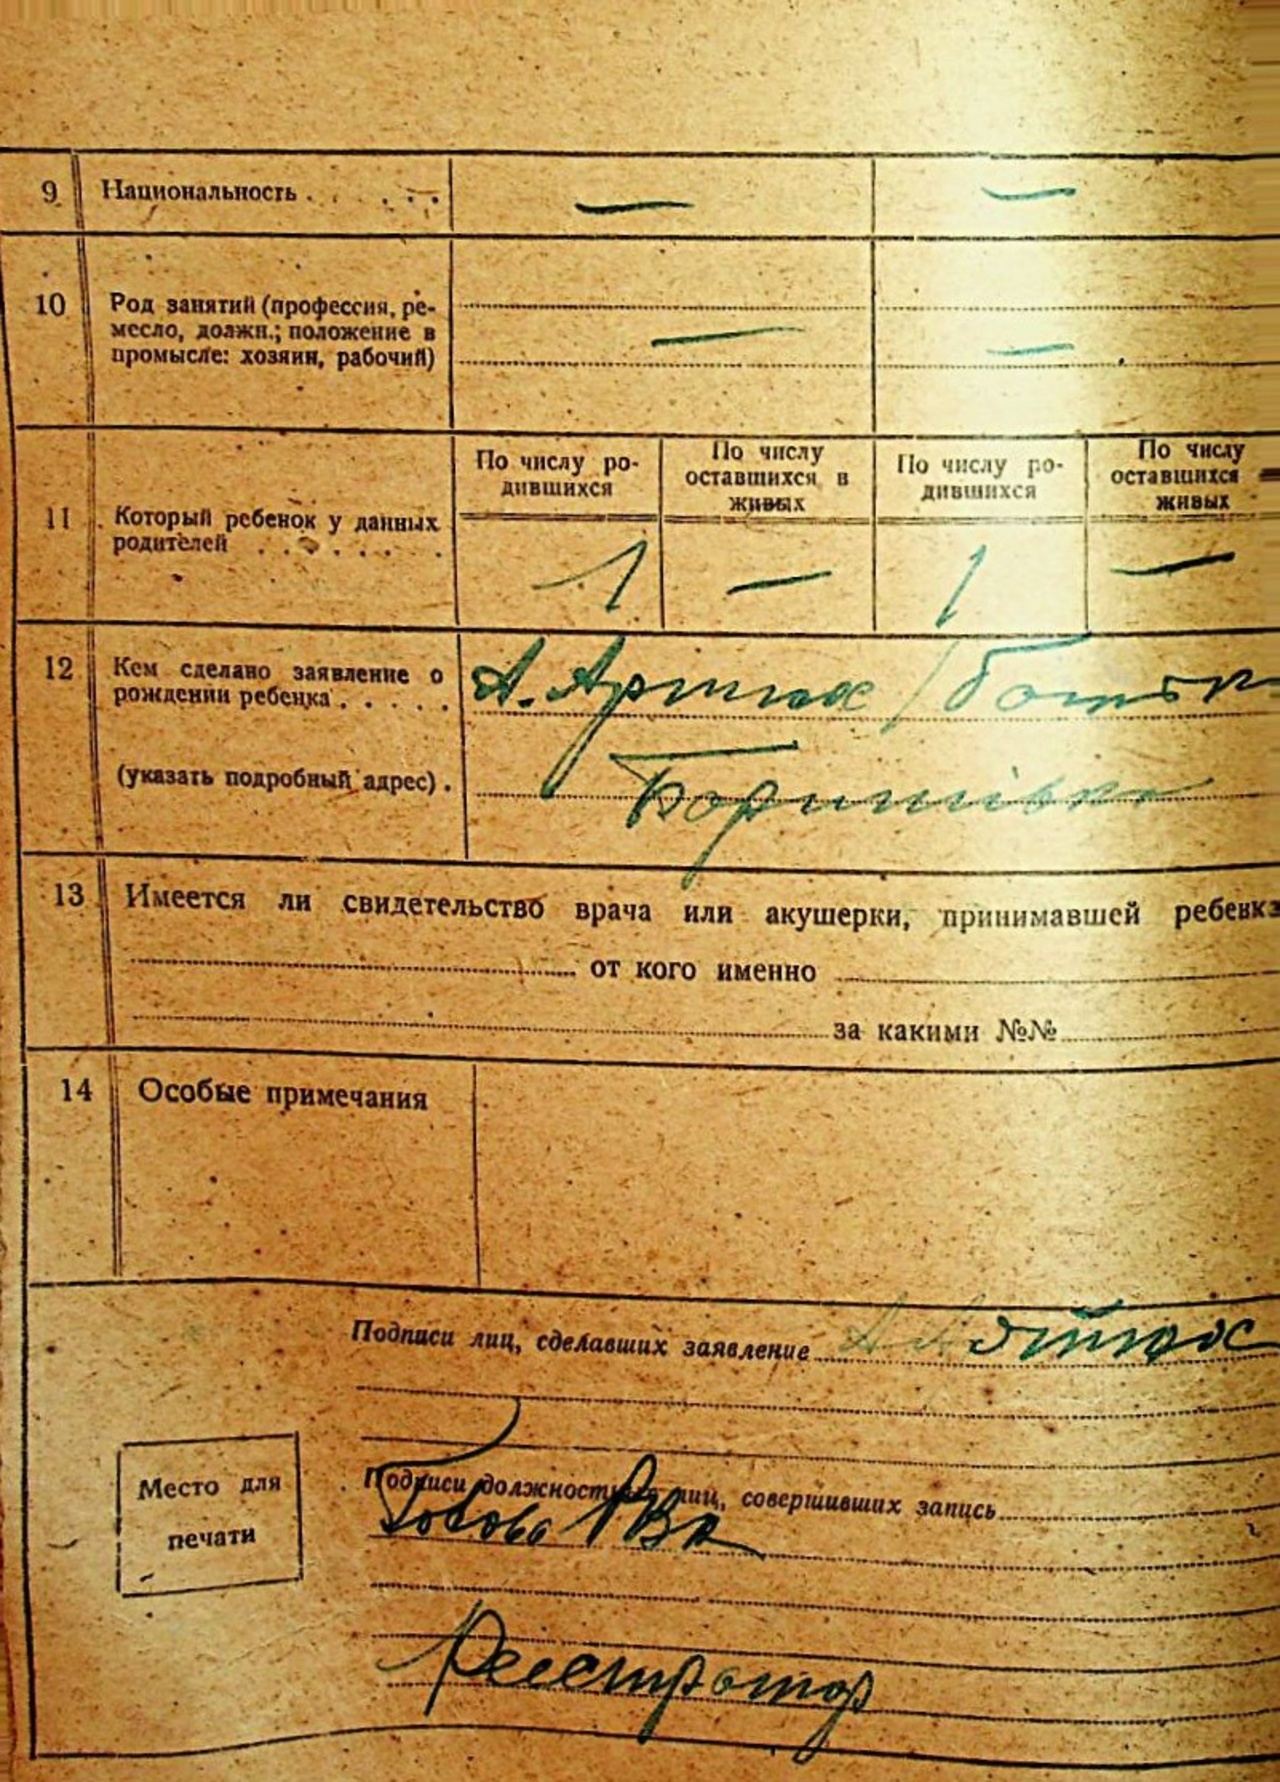 9 Национальность . . . . . . — —
10 Род занятий (профессия, ре-
месло, должн.; положение в
промысле: хозяин, рабочий) — —
По числу ро-
дившихся
По числу
оставшихся в
живых
По числу ро-
дившихся
По числу
оставшихся
живых
11 Который ребенок у данных
родителей . . . . . . .
1 — 1 —
12 Кем сделано заявление о
рождении ребенка . . . . .
(указать подробный адрес) .
13 Имеется ли свидетельство врача или акушерки, принимавшей ребенка
от кого именно
за какими №№
14 Особые примечания
Подписи лиц, сделавших заявление
Место для
печати
Подписи должностных лиц, совершивших запись
Голова
Реестратор